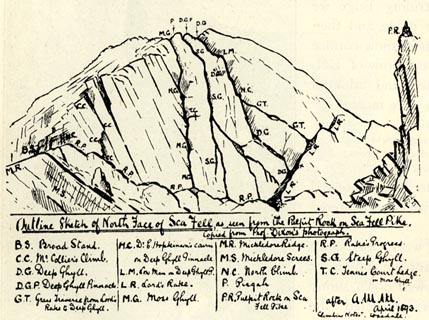 P D.G.P D.G
M.G.
P.R.
S.G.
L.M.
D.G.P
M.C.
C.C.
G.T.
D.G.
G.T.
S.G.
C.C.
R.P.
L.R.
B.S.
N.C.
M.R.
R.P.
M.S.
R.P.
R.P.
Outline Sketch of North Face of Sea Fell as seen from the Pulpit Rock on Sea Fell Pike.
Copied from Prof. Dixon's photograph.
B.S. Broad Stand.
C.C. Mr Collier's Climb.
D.G. Deep Ghyll.
D.G.P. Deep Ghyll Pinnacle
G.T. Great Traverse from Lord's
Rake to Deep Ghyll.
M.C. Dr. E Hopkinson's cairn
on Deep Ghyll Pinnacle
L.M. Low Man on Deep Ghyll P.
L.R. Lord's Rake.
M.G. Moss Ghyll.
M.R. Mickledore Ridge.
M.S. Mickledore Screes.
N.C. North Climb.
P. Pisgah
P.R. Pulpit Rock on Sea
Fell Pike
R.P. Rake's Progress.
S.G. Steep Ghyll.
T.C. Tennis Court Ledge.
in Moss Ghyll
after A.M.M.
April 1893.
Climbing Notes. Wasdale